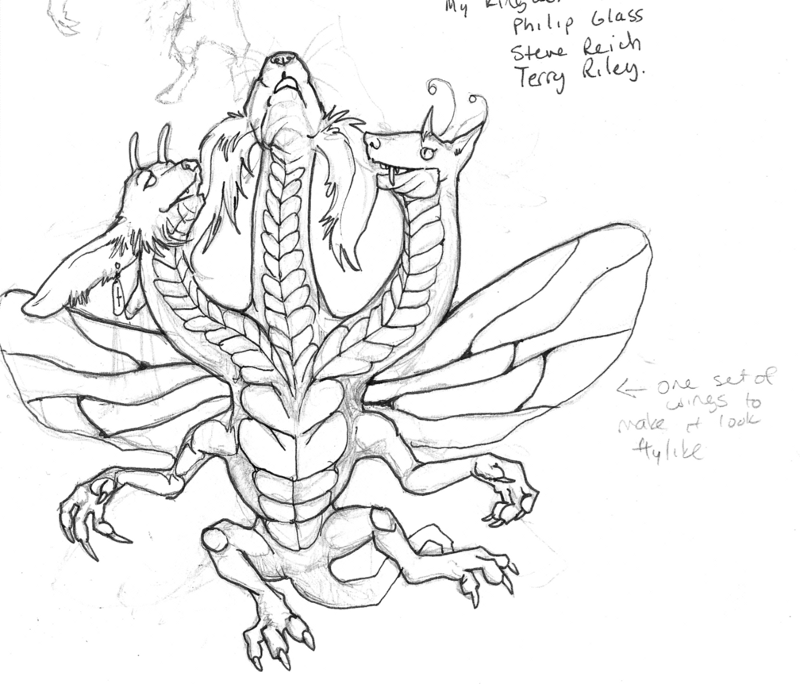 My
Philip Glass
Steve Reich
Terry Riley.
← one set of
wings to
make it look
flylike